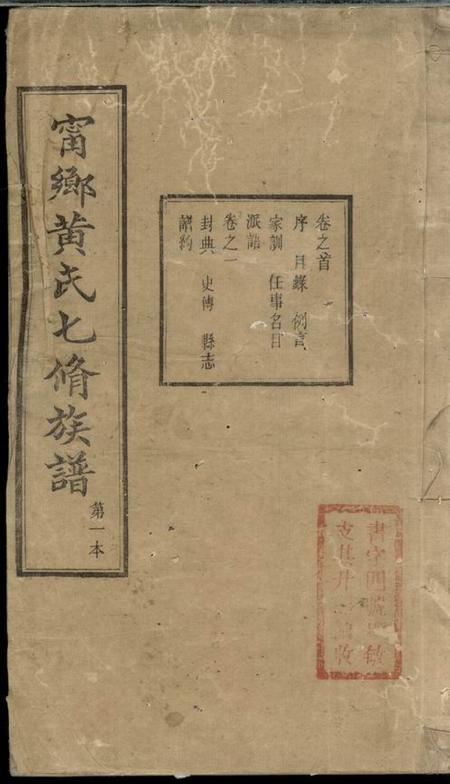 甯鄉黃氏七脩族譜
第一本
卷之首
序 目錄 例言
家訓 任事名目
派語
卷之一
封典 史傳 縣志
譜約
書字四號